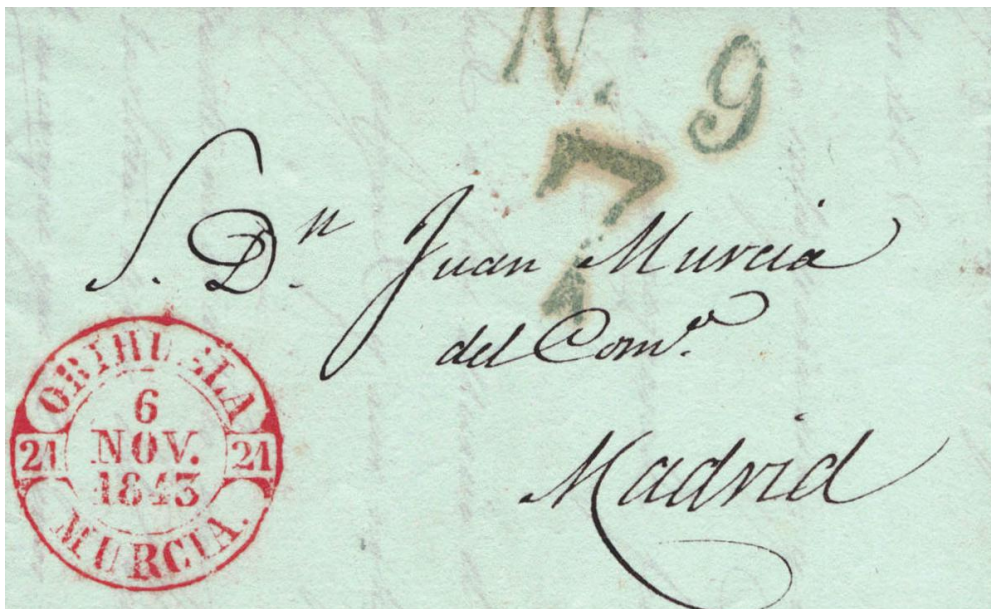 N. 9
7
S. Dn. Juan Murcia
del Como.
Madrid
ORIHUELA
6
NOV.
1843
21 21
MURCIA.